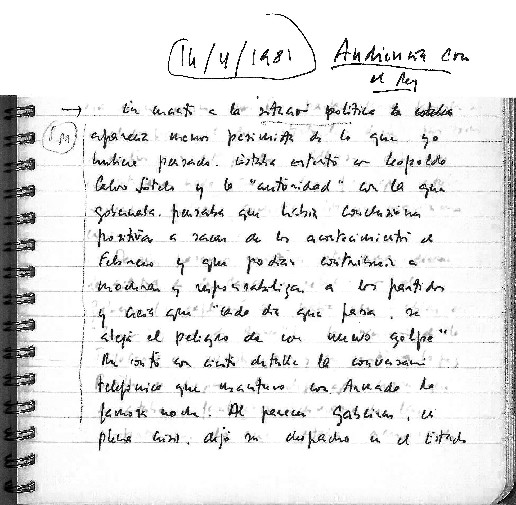 14/4/1981 Audiencia con
el Rey
→ En cuanto a la situación política la
SM aparece menos pesimista de lo que yo
hubiera pensado. Estaba contento con Leopoldo
Calvo Sotelo y la "autoridad" con la que
gobernaba. pensaba que había conclusiones
positivas a sacar de los acontecimientos de
Febrero y que podían contribuir a
moderar y responsabilizar a los partidos
y creía que "cada día que pasa, se
aleja el peligro de un nuevo golpe"
Me contó con cierto detalle la conversación
telefónica que mantuvo con Armada la
famosa noche. Al parecer Gabeiras, en
plena crisis, dejó su despacho en el Estado